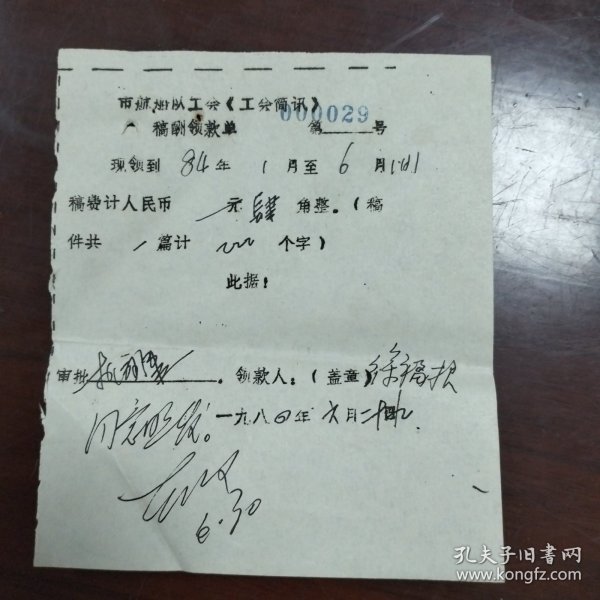 市航运队工会《工会简讯》
000029
稿酬领款单 第 号
现领到 84 年 1 月至 6 月间
稿费计人民币 元 肆 角整。(稿
件共 1 篇计 200 个字)
此据!
审批 。领款人:(盖章)徐福根
同意照发。 一九八四年 六月二十九
6.30
孔夫子旧书网
www.kongfz.com